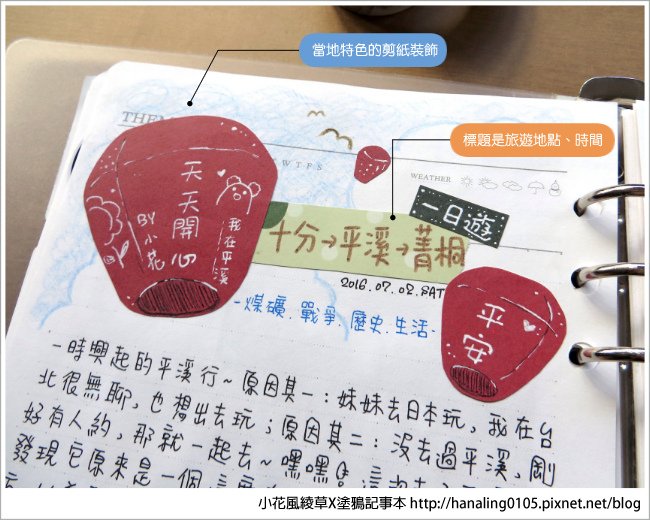 當地特色的剪紙裝飾
標題是旅遊地點、時間
THE
W T F S
WEATHER
天天開心
BY小花
我在平溪
一日遊
十分→平溪→菁桐
2016.07.02.SAT
-煤礦.戰爭.歷史.生活-
平安
一時興起的平溪行~原因其一:妹妹去日本玩,我在台
北很無聊,也想出去玩;原因其二:沒去過平溪,剛
好有人約,那就一起去~嘿嘿
發現它原來是一個
小花風綾草X塗鴉記事本 http://hanaling0105.pixnet.net/blog